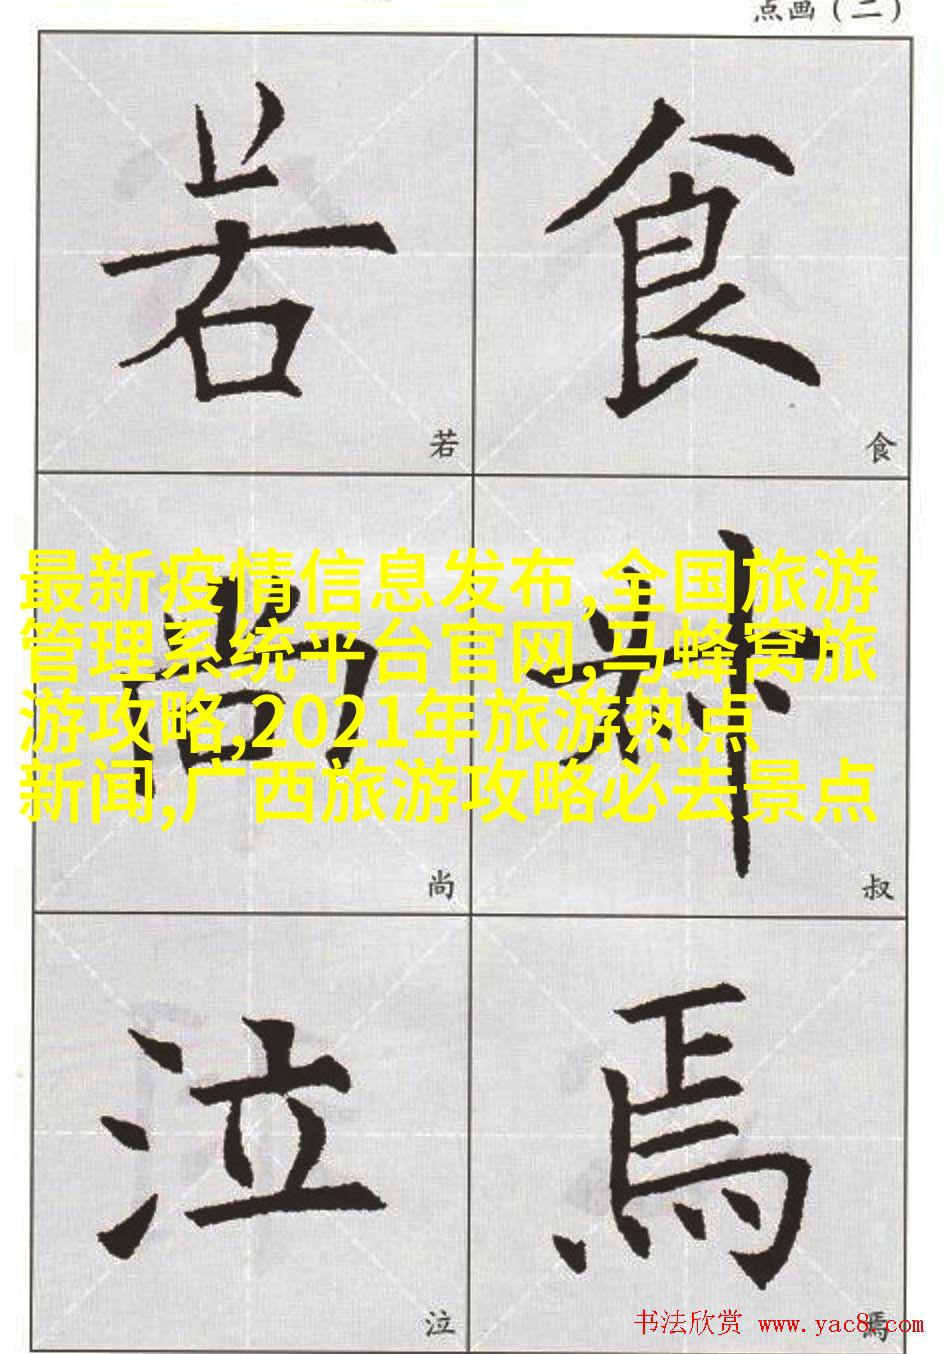 点画（二）
若 食
若 食
最新疫情信息发布,全国旅游
管理系统平台官网,马蜂窝旅
游攻略,2021年旅游热点
新闻,广西旅游攻略必去景点
尚 叔
尚 叔
泣 焉
泣 焉
书法欣赏 www.yac8.com